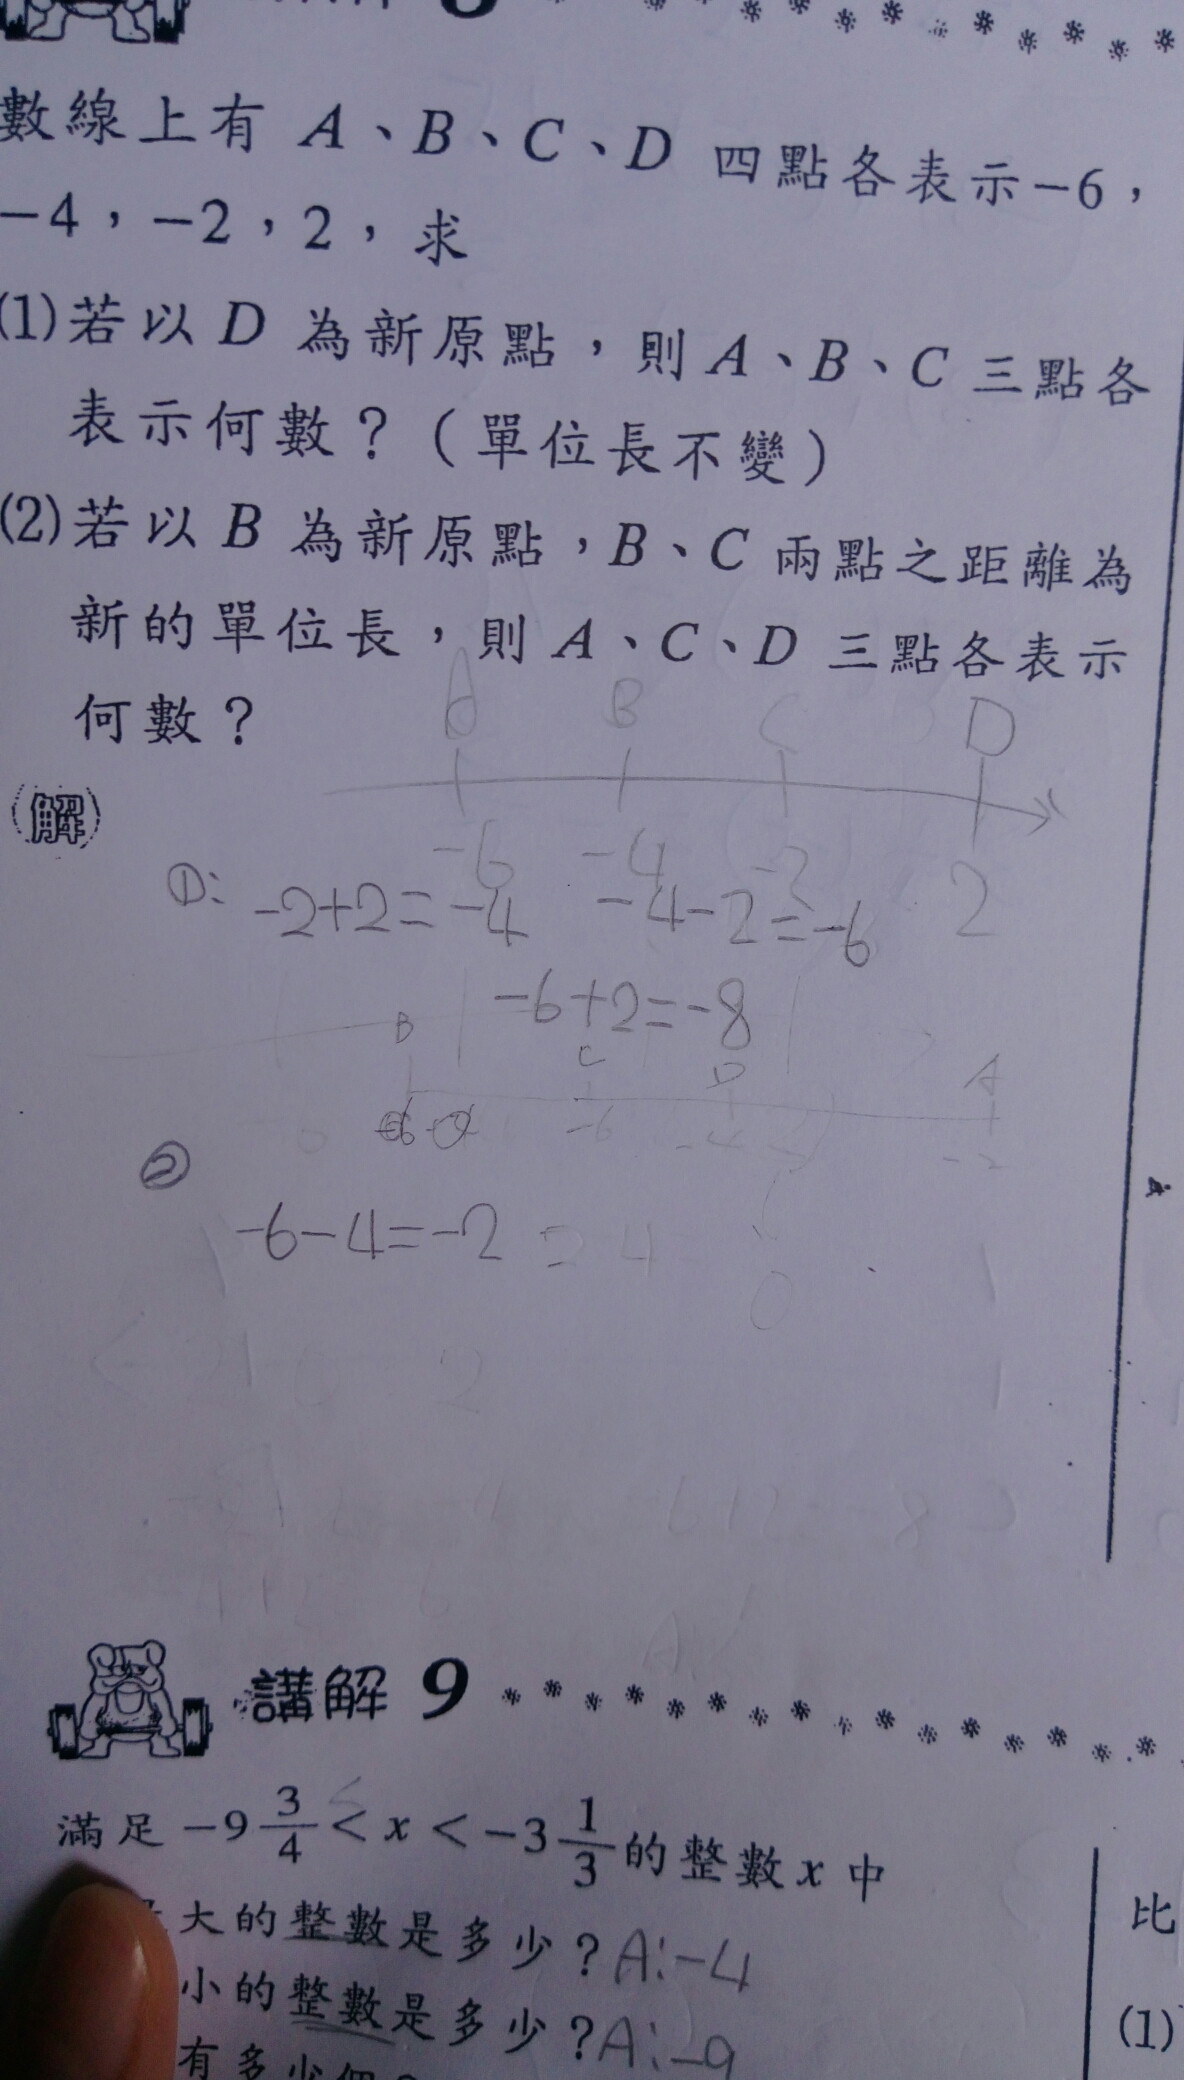 數線上有 A、B、C、D 四點各表示－6，
－4，－2，2，求
(1)若以 D 為新原點，則 A、B、C 三點各
表示何數？（單位長不變）
(2)若以 B 為新原點，B、C 兩點之距離為
新的單位長，則 A、C、D 三點各表示
何數？
A B C D
(解)
-6 -4 -2 2
①: -2+2=-4 -4-2=-6
-6+2=-8
B C D A
-6 -4 -2
②
-6-4=-2
講解 9
滿足 －9 3/4 < x < －3 1/3 的整數 x 中
大的整數是多少？A:-4
小的整數是多少？A:-9
有多少個？
比
(1)